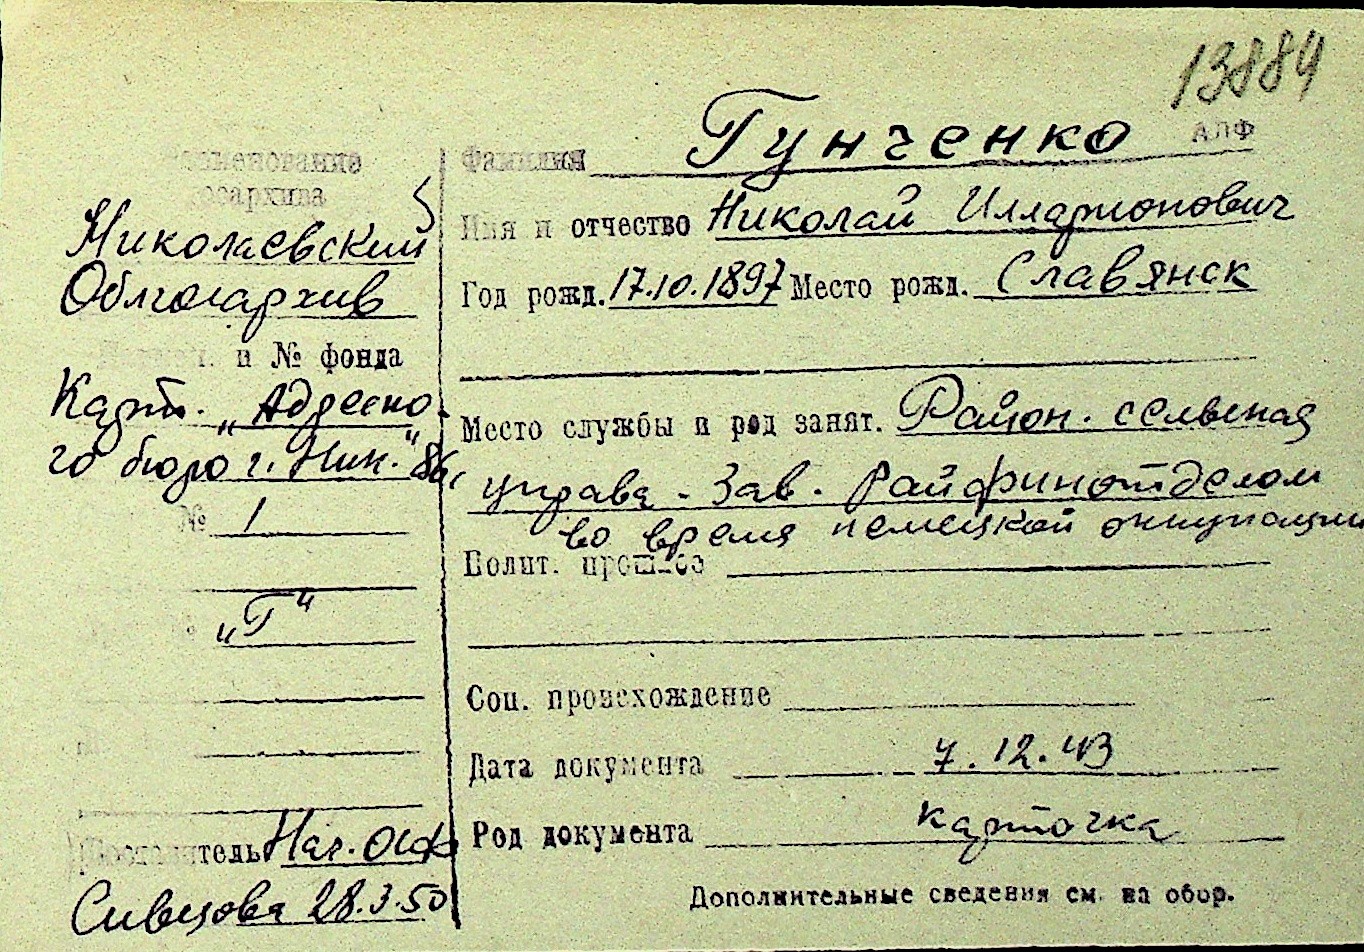 13884
АПФ
Наименование госархива
Николаевский
Облгосархив
и № фонда
Карт. „Адресно-
го бюро г. Ник."
№ 1
„Г"
Составитель Нач. ОИФ
Сивцова 28.3.50
Фамилия Гунченко
Имя и отчество Николай Илларионович
Год рожд. 17.10.1897 Место рожд. Славянск
Место службы и род занят. Район. сельская
управа - Зав. Райфинотделом
во время немецкой оккупации
Полит. прошлое
Соц. происхождение
Дата документа 7.12.43
Род документа карточка
Дополнительные сведения см. на обор.